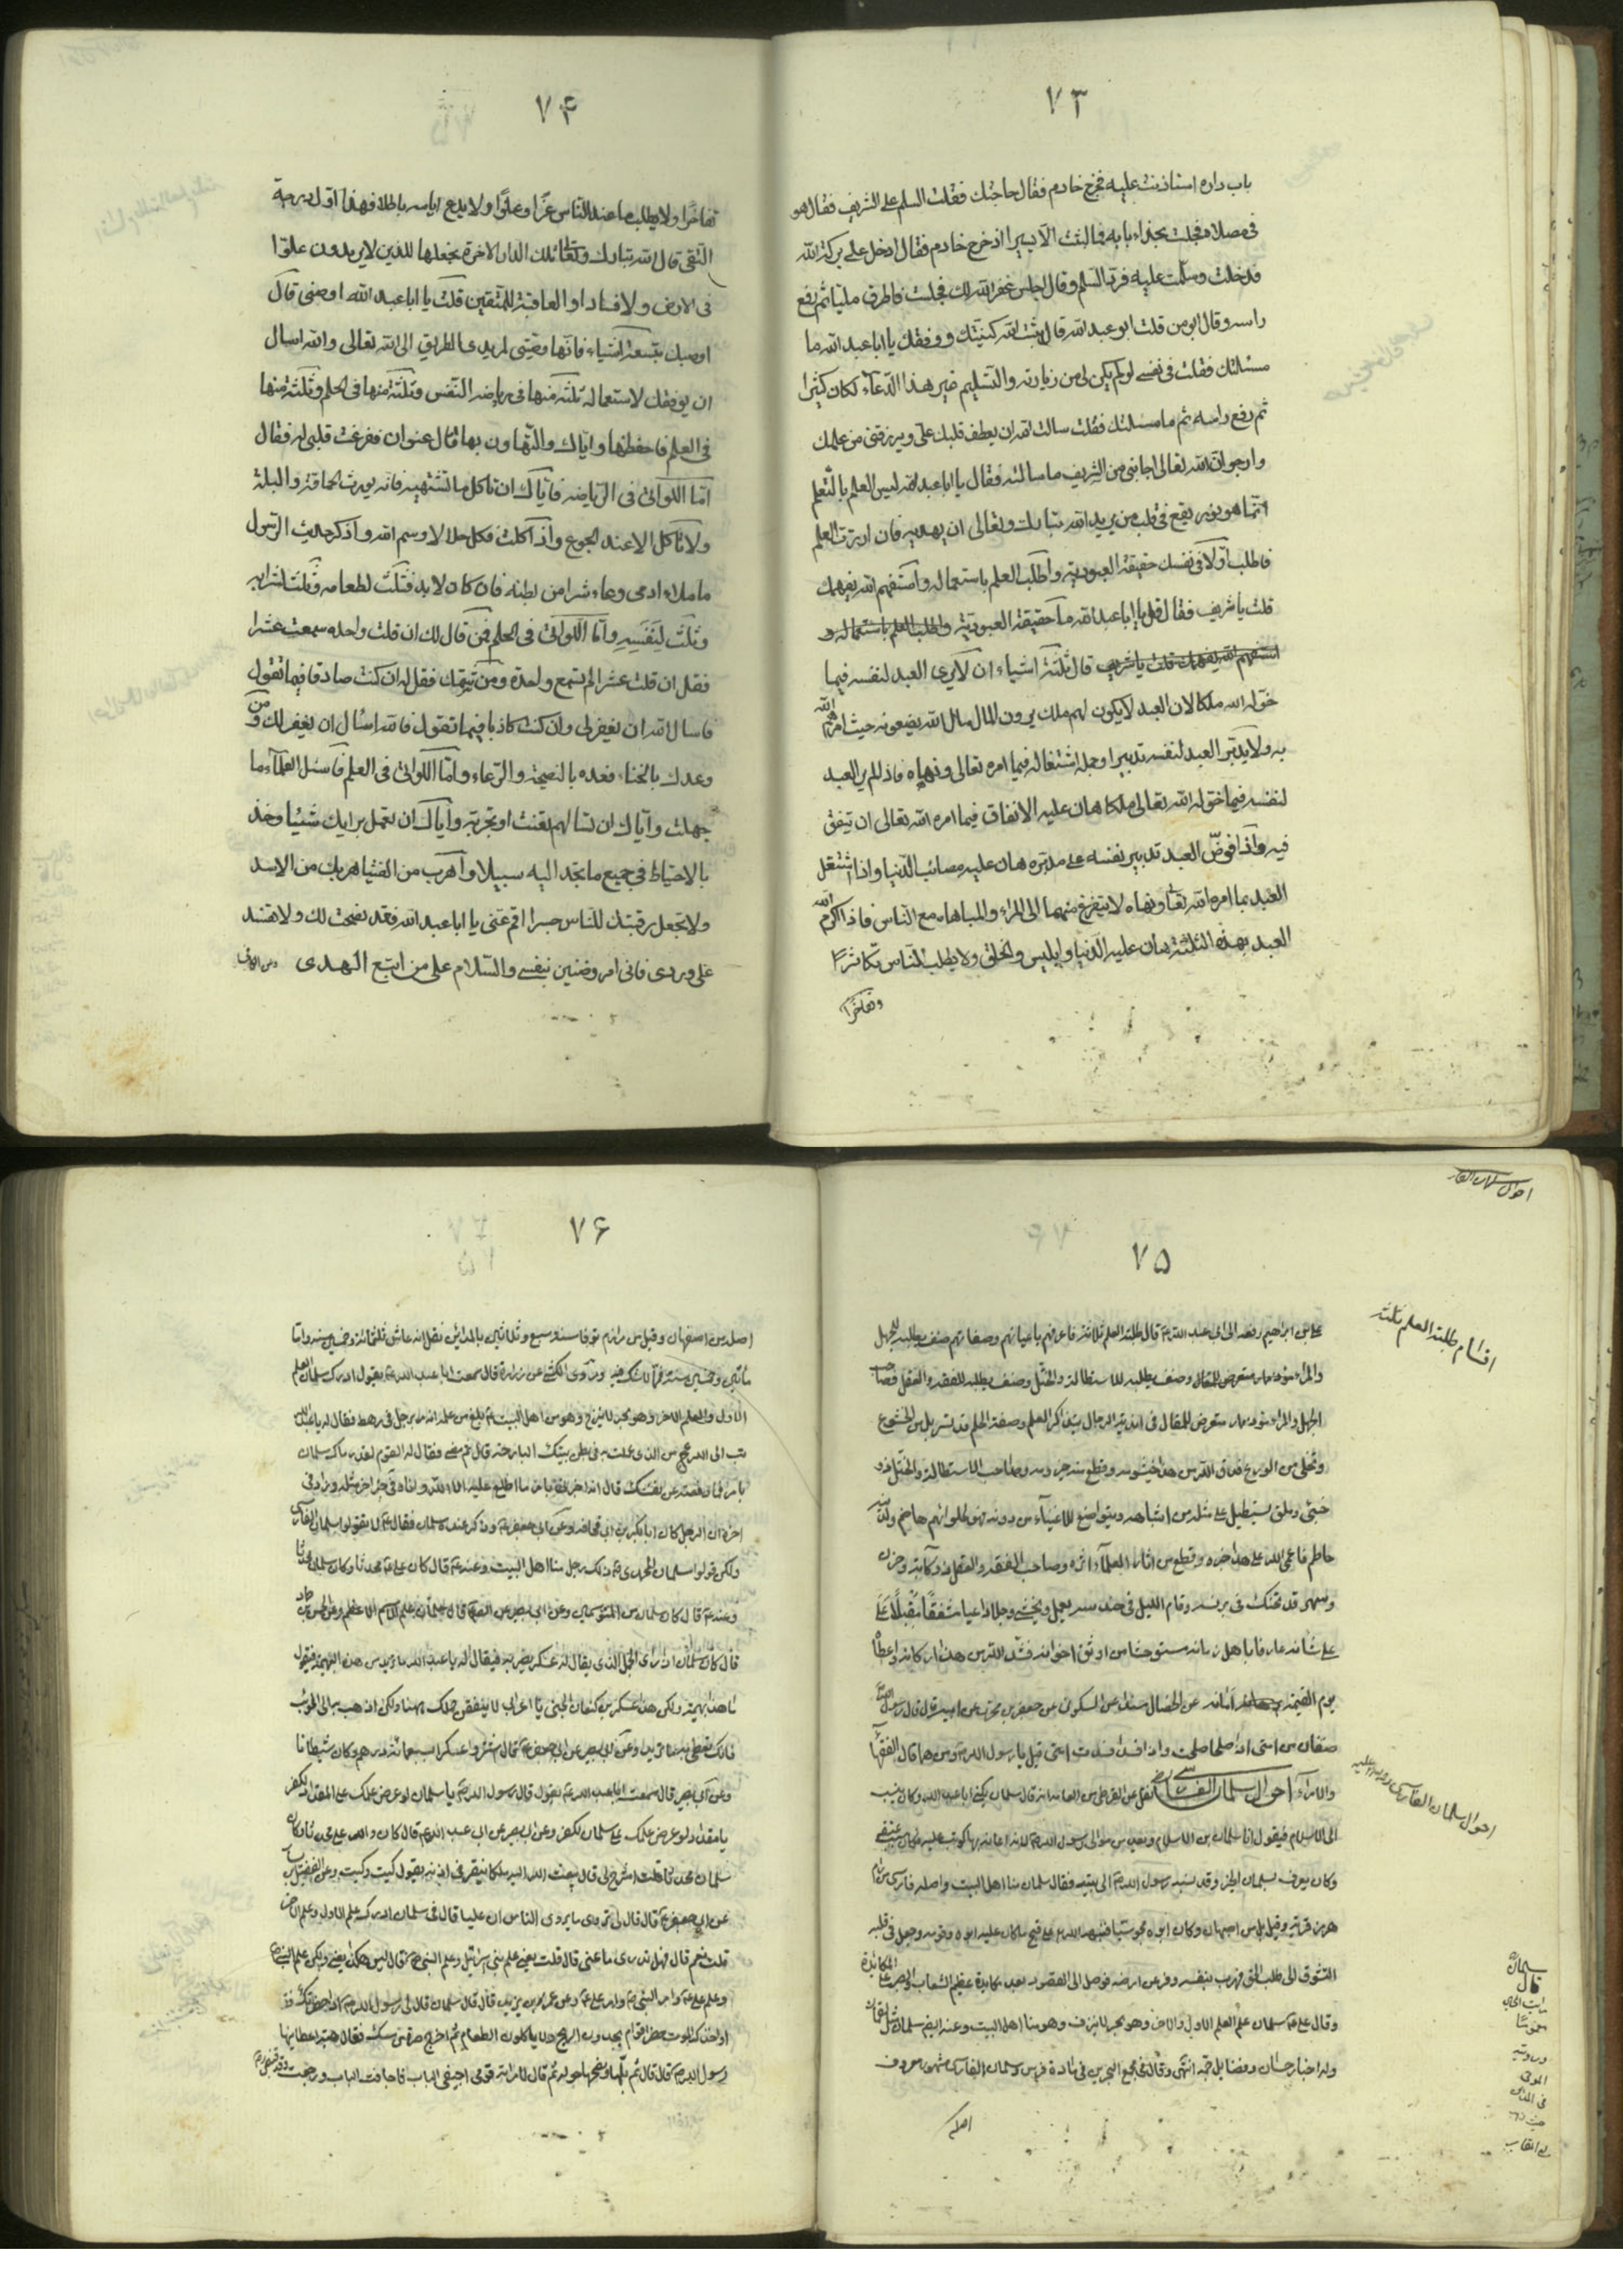 ٧٣
باب داره استاذنت عليه فخرج خادم فقال حاجتك فقلت السلم على الشريف فقال هو
فى مصلاه فجلست بحذاء بابه فما لبثت الا يسيرا اذ خرج خادم فقال ادخل على بركة الله
فدخلت وسلمت عليه فرد السلم وقال اجلس غفر الله لك فجلست فاطرق مليّا ثم رفع
راسه وقال ابو من قلت ابو عبد الله قال ثبت الله كنيتك ووفقك يا ابا عبد الله ما
مسئلتك فقلت فى نفسى لو لم يكن لى من زيارته والتسليم غير هذا الدعاء لكان كثيرا
ثم رفع راسه ثم ما مسئلتك فقلت سالت الله ان يعطف قلبك علىّ ويرزقنى من علمك
وارجو انّ الله تعالى اجابنى من الشريف ما سالته فقال يا ابا عبد الله ليس العلم بالتعلم
انّما هو نور يقع فى قلب من يريد الله تبارك وتعالى ان يهديه فان اردت العلم
فاطلب اوّلا فى نفسك حقيقة العبودية واطلب العلم باستعماله واستفهم الله يفهمك
قلت يا شريف فقال قل يا ابا عبد الله ما حقيقة العبودية واطلب العلم باستعماله و
استفهم الله يفهمك قلت يا شريف قال ثلثة اشياء ان لا يرى العبد لنفسه فيما
خوّله الله ملكا لان العبد لا يكون لهم ملك يرون المال مال الله يضعونه حيث امرهم الله
به ولا يدبّر العبد لنفسه تدبيرا وجلة اشتغاله فيما امره تعالى ونهاه فاذا لم ير العبد
لنفسه فيما خوّله الله تعالى ملكا هان عليه الانفاق فيما امره الله تعالى ان ينفق
فيه واذا فوّض العبد تدبير نفسه على مدبّره هان عليه مصائب الدنيا واذا اشتغل
العبد بما امره الله تعالى ونهاه لا يتفرغ منهما الى المراء والمباهاه مع الناس فاذا اكرم الله
العبد بهذه الثلثة هان عليه الدنيا وابليس والخلق ولا يطلب للناس تكاثرًا
وتفاخرًا
٧۴
تفاخرًا ولا يطلب ما عند الناس عزًّا وعلوًّا ولا يدع ايامه باطلا فهذا اوّل درجة
التّقى قال الله تبارك وتعالى تلك الدار الاخرة نجعلها للذين لا يريدون علوّا
فى الارض ولا فسادا والعاقبة للمتقين قلت يا ابا عبد الله اوصنى قال
اوصيك بتسعة اشياء فانّها وصيّتى لمريدى الطريق الى الله تعالى والله اسال
ان يوفقك لاستعماله ثلثة منها فى رياضة النّفس وثلثة منها فى الحلم وثلثة منها
فى العلم فاحفظها وايّاك والتّهاون بها قال عنوان ففرغت قلبى له فقال
امّا اللّواتى فى الرّياضه فايّاك ان تاكل ما لا تشتهيه فانه يورث الحماقة والبله
ولا تاكل الا عند الجوع واذا اكلت فكل حلالا وسمّ الله واذكر حديث الرّسول
ما ملاء ادمى وعاء شرا من بطنه فان كان لا بد فثلث لطعامه وثلث لشرابه
وثلث لنفسه وامّا اللّواتى فى الحلم فمن قال لك ان قلت واحدة سمعت عشرا
فقل ان قلت عشرا لم تسمع واحدة ومن شتمك فقل له ان كنت صادقا فيما تقول
فاسال الله ان يغفر لى وان كنت كاذبا فيما تقول فالله اسئال ان يغفر لك ومن
وعدك بالخناء فعده بالنصيحة والرّعاء وامّا اللّواتى فى العلم فاسئل العلمآء ما
جهلت وايّاك ان تسالهم تعنت او تجربة وايّاك ان تعمل برايك شيئا وخذ
بالاحتياط فى جميع ما تجد اليه سبيلا واهرب من الفتيا هربك من الاسد
ولا تجعل رقبتك للنّاس جسرا اقم عنى يا ابا عبد الله فقد نصحت لك ولا تفسد
علىّ وردى فانى امرء ضنين بنفسى والسّلام على من اتبع الهدى
احوال سلمان الفار
٧۵
اقسام طلبة العلم ثلثه
على بن ابراهيم رفعه الى ابى عبد الله ع قال طلبة العلم ثلاثة فاعرفهم باعيانهم وصفاتهم صنف يطلبه للجهل
والمراء وصنف يطلبه للاستطالة والختل وصنف يطلبه للفقه والعقل فصاحب
الجهل والمراء موذ ممار متعرض للمقال فى اندية الرجال بتذاكر العلم وصفة الحلم قد تسربل بالخشوع
وتخلى من الورع فدق الله من هذا خيشومه وقطع منه حيزومه وصاحب الاستطالة والختل ذو
خبّ وملق يستطيل على مثله من اشباهه ويتواضع للاغنيآء من دونه فهو لحلوائهم هاضم ولدينه
حاطم فاعمى الله على هذا خبره وقطع من اثار العلمآء اثره وصاحب الفقه والعقل ذو كآبة وحزن
وسهر قد تحنّك فى برنسه وقام الليل فى حندسه يعمل ويخشى وجلا داعيا مشفقًا مقبلًا
على شانه عارفا باهل زمانه مستوحشا من اوثق اخوانه فشدّ الله من هذا اركانه واعطاه
يوم القيمة امانه عن الخصال مسندا عن السكونى عن جعفر بن محمد عن ابيه ع قال قال رسول الله
صنفان من امتى اذا صلحا صلحت واذا فسدا فسدت امتى قيل يا رسول الله ص ومن هما قال الفقهآء
والامرآء احوال سلمان الفارسى رض نقل عن القرطبى من العامة انه قال سلمان يكنى ابا عبد الله وكان ينسب
الى الاسلام فيقول انا سلمان بن الاسلام ويعد من موالى رسول الله ص لانه اعانه بما كوتب عليه
وكان يعرف بسلمان الخير وقد نسبه رسول الله ص الى بيته فقال سلمان منا اهل البيت واصله فارسى من رام
هرمز قرية وقيل بل من اصبهان وكان ابوه مجوسيّا فنبهه الله على قبح ما كان عليه ابوه وقومه وجعل فى قلبه
التشوق الى طلب الحق فهرب بنفسه وفر عن ارضه فوصل الى المقصود بعد مكابدة عظيم الشعاب والصبر على المكابدة
وقال على ع سلمان علم العلم الاول والاخر وهو بحر لا ينزف وهو منا اهل البيت وعنه ايضا سلمان مثل لقمان
وله اخبار حسان وفضايل جمة انتهى وقال فى مجمع البحرين فى مادة فرس وسلمان الفارسى مشهور معروف
اصله
احوال سلمان الفارسى رحمة الله عليه
٧۶
اصله من اصفهان وقيل من رامهرمز توفى سنة سبع وثلاثين بالمدائن نقل انه عاش ثلثمائة وخمسين سنة وامّا
مأتين وخمسين سنة فمما لا شك فيه وروى الكشى عن زرارة قال سمعت ابا عبد الله ع يقول ادرك سلمان العلم
الاول والعلم الاخر وهو بحر لا ينزح وهو منا اهل البيت بلغ من علمه انه مر برجل فى رهط فقال له يا عبد الله
تب الى الله عز وجل من الذى عملت به فى بطن بيتك البارحة قال ثم مضى فقال له القوم لقد رماك سلمان
بامر فما دفعته عن نفسك قال انه اخبرنى بامر ما اطلع عليه الا الله وانا وفى خبر اخر مثله وزاد فى
اخره ان الرجل كان ابا بكر بن ابى قحافه وعن ابى جعفر ع وذكر عنده سلمان فقال ع لا تقولوا سلمان الفارسى
ولكن قولوا سلمان المحمدى ذلك رجل منا اهل البيت وعنه ع قال كان على ع محدثا وكان سلمان محدثا
وعنه ع قال كان سلمان من المتوسمين وعن ابى بصير عن الصادق ع قال سلمان علم الاسم الاعظم
قال كان سلمان اذا راى الجمل الذى يقال له عسكر يضربه فيقال له يا عبد الله ما تريد من هذه البهيمة فيقول
ما هذا بهيمة ولكن هذا عسكر بن كنعان الجنى يا اعرابى لا ينفق جملك ههنا ولكن اذهب به الى الحوئب
فانك تعطى به ما تريد وعن ابى بصير عن ابى جعفر ع قال اشتروا عسكرا بسبعمائة درهم وكان شيطانا
وعن ابى بصير قال سمعت ابا عبد الله ع يقول قال رسول الله ص يا سلمان لو عرض علمك على المقداد لكفر
يا مقداد لو عرض علمك على سلمان لكفر وعن ابى بصير عن ابى عبد الله ع قال كان والله على محدثا وكان
سلمان محدثا قلت اشرح لى قال يبعث الله اليه ملكا ينقر فى اذنيه يقول كيت وكيت وعن الفضيل بن يسار
عن ابى جعفر ع قال قال لى تروى ما يروى الناس ان عليا قال فى سلمان ادرك علم الاول وعلم الاخر
قلت نعم قال فهل تدرى ما عنى قال قلت يعنى علم بنى اسرائيل وعلم النبى ص فقال ليس هكذا يعنى ولكن علم النبى ص
وعلم على ع وامر النبى ص وامر على ع وعن عمر بن يزيد قال قال سلمان قال لى رسول الله ص اذا حضرك
او اخذك الموت حضر اقوام يجدون الريح ولا ياكلون الطعام ثم اخرج صرة من مسك فقال هبة اعطانيها
رسول الله ص قال ثم بلها ونضحها حوله ثم قال لامراته قومى اجيفى الباب فاجافت الباب ورجعت وقد قبض رض